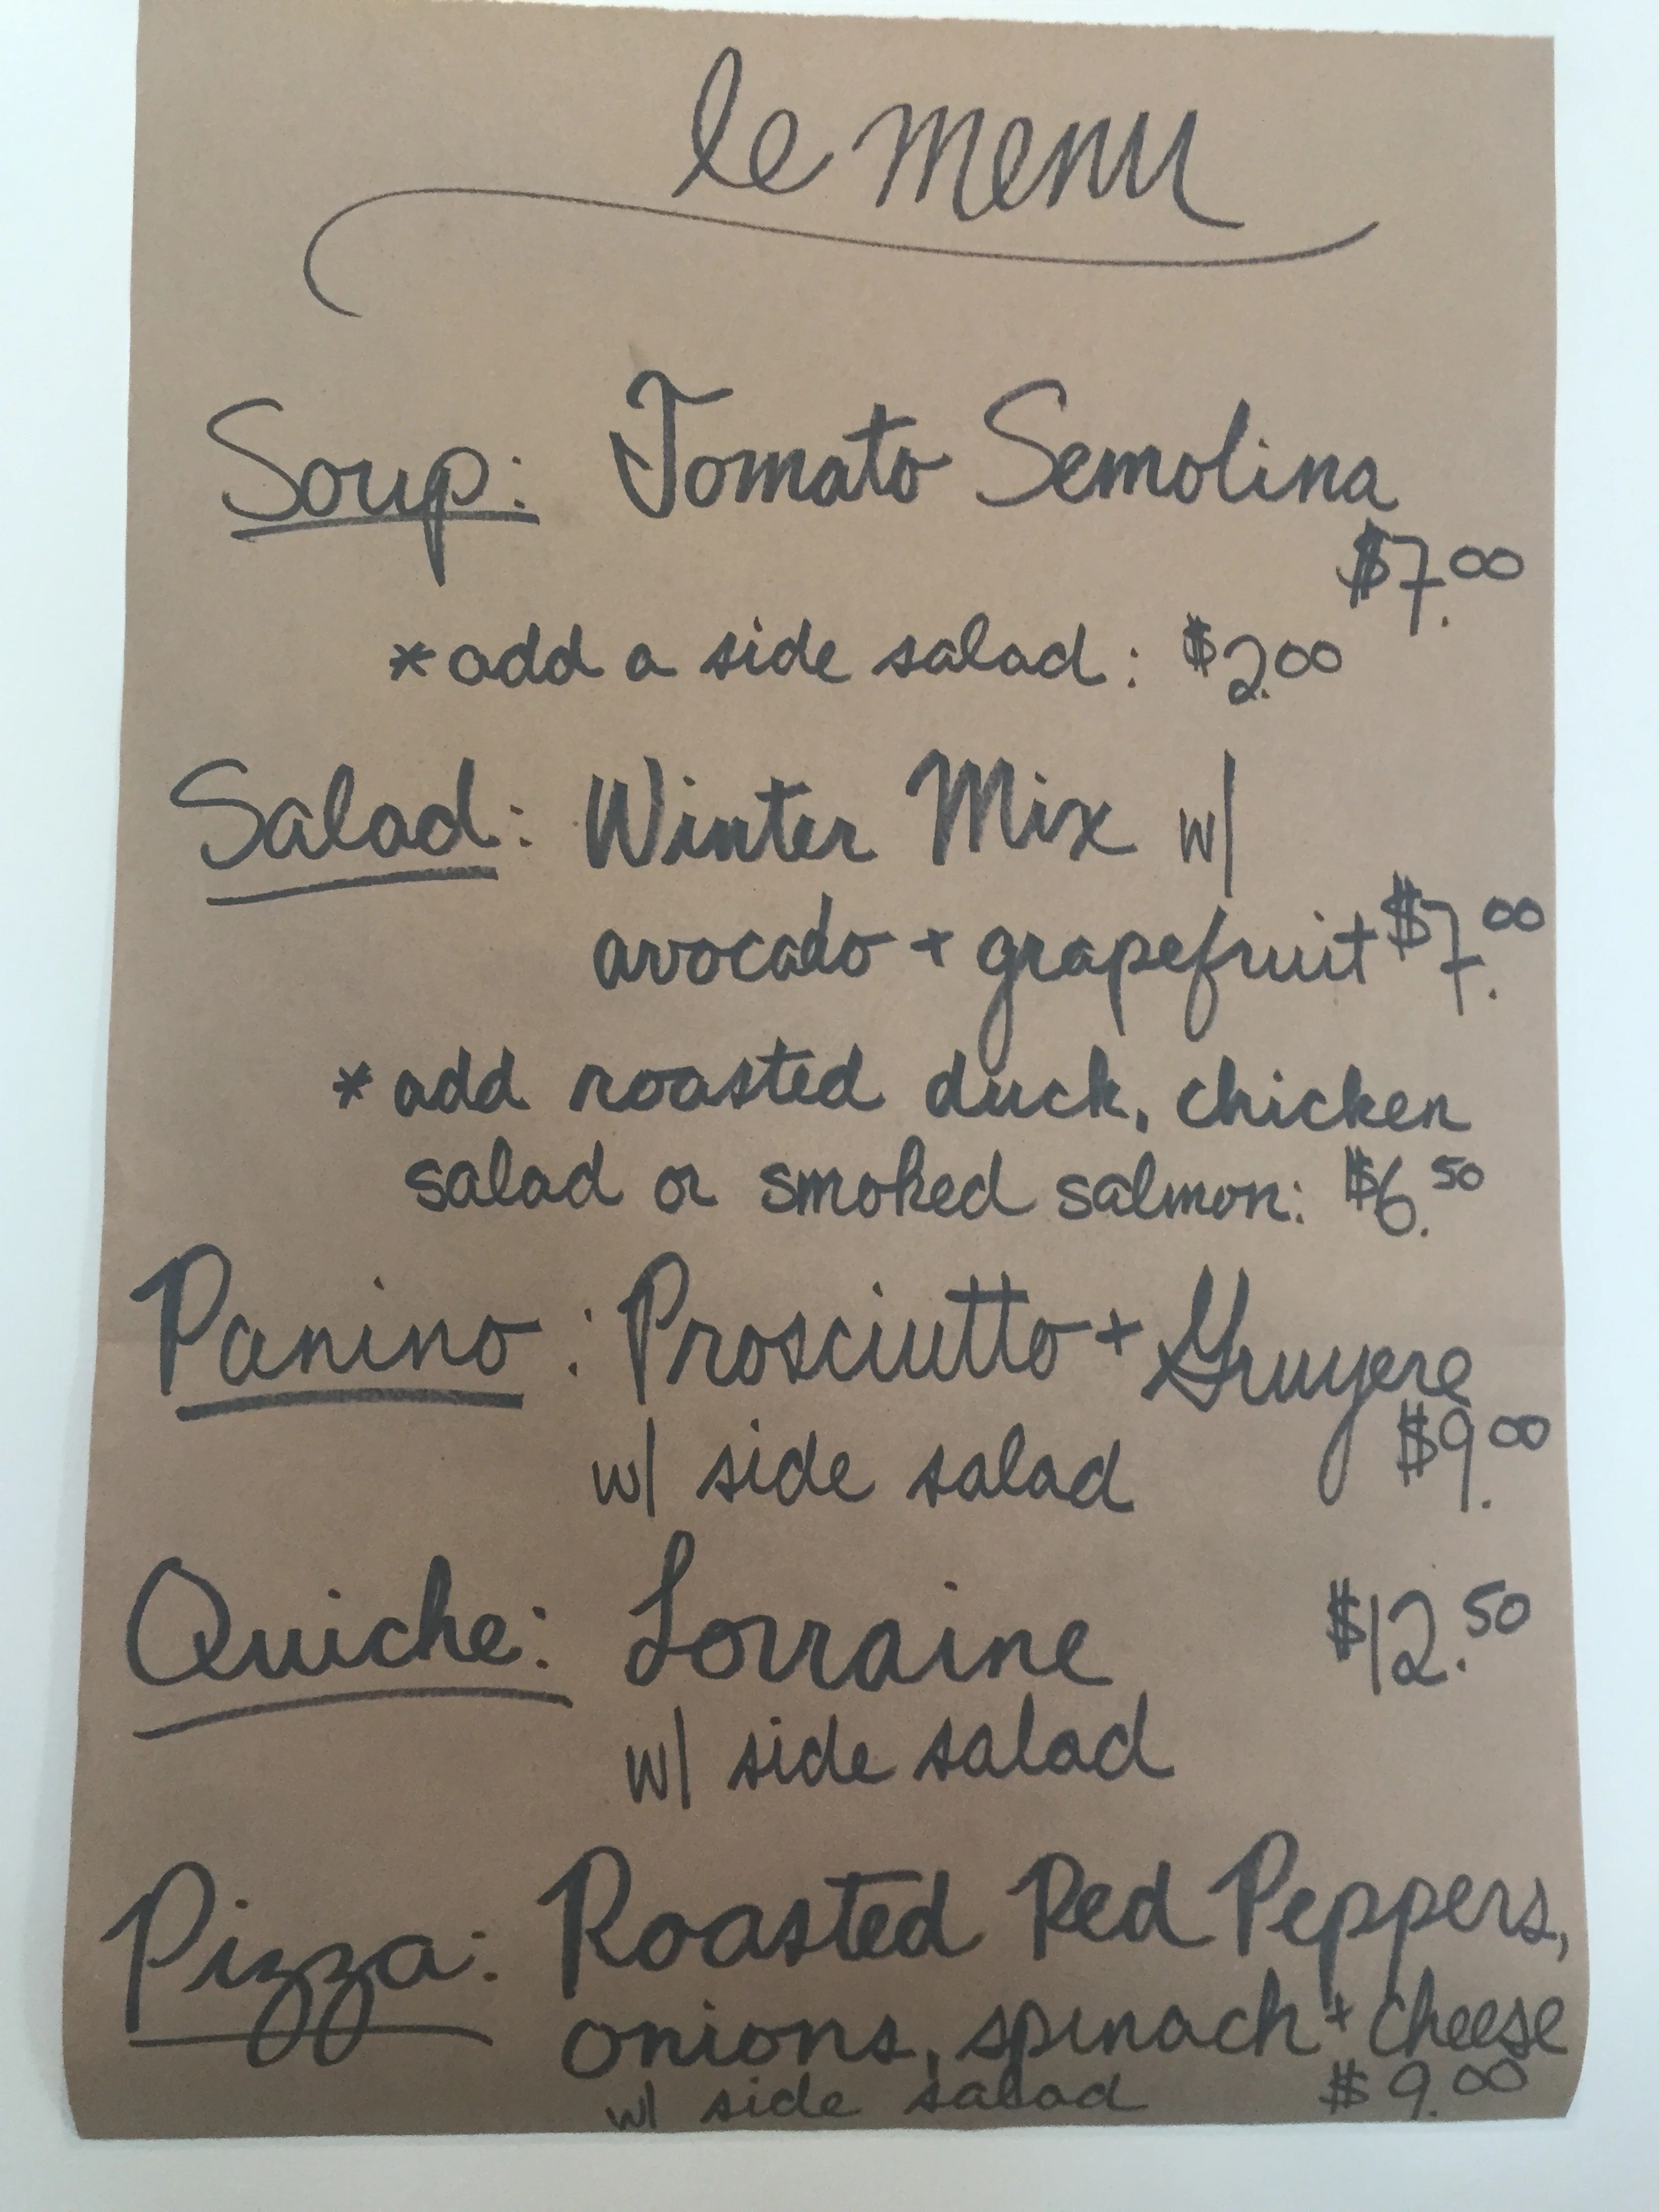 le menu
Soup: Tomato Semolina
$7.00
*add a side salad: $2.00
Salad: Winter Mix w/
avocado + grapefruit $7.00
*add roasted duck, chicken
salad or smoked salmon: $6.50
Panino: Prosciutto + Gruyere
w/ side salad $9.00
Quiche: Lorraine $12.50
w/ side salad
Pizza: Roasted Red Peppers,
onions, spinach + cheese
w/ side salad $9.00